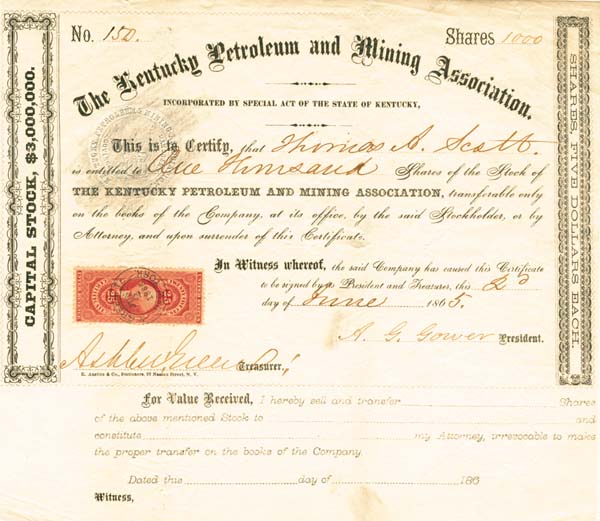 No. 150. Shares 1000
The Kentucky Petroleum and Mining Association.
INCORPORATED BY SPECIAL ACT OF THE STATE OF KENTUCKY,
This is to Certify, that Thomas A. Scott.
is entitled to One Thousand Shares of the Stock of
THE KENTUCKY PETROLEUM AND MINING ASSOCIATION, transferable only
on the books of the Company, at its office, by the said Stockholder, or by
Attorney, and upon surrender of this Certificate.
In Witness whereof, the said Company has caused this Certificate
to be signed by its President and Treasurer, this 2d
day of June 1865.
A. G. Gower President.
Treasurer,
E. Anstice & Co., Stationers, Nassau Street, N. Y.
CAPITAL STOCK, $3,000,000.
SHARES, FIVE DOLLARS EACH.
25 25
For Value Received, I hereby sell and transfer Shares
of the above mentioned Stock to and
constitute my Attorney, irrevocable to make
the proper transfer on the books of the Company.
Dated this day of 186
Witness,